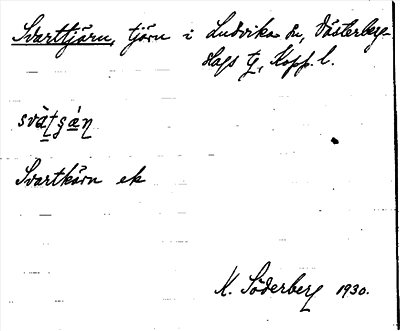 Svarttjärn, tjärn i Ludvika sn, Västerbergs-
lags tg, Kopp. l.
svàt̠ʂá̠ɳ
Svartkärn ek
K. Söderberg 1930.